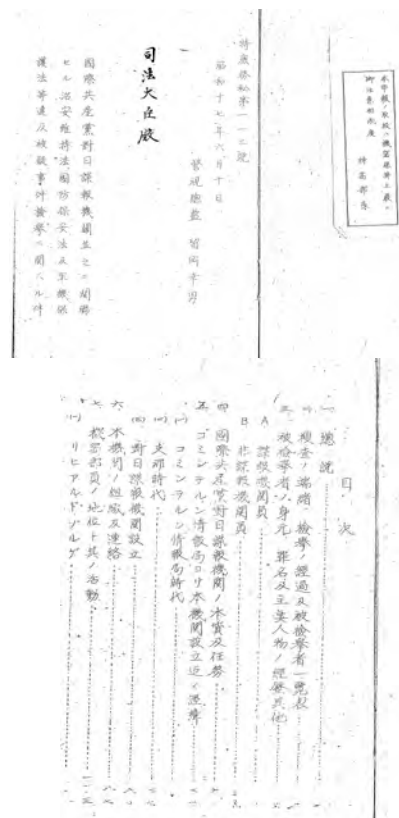 特高秘第一一三號
昭和十七年六月十日
警視總監 留岡幸男
司法大臣殿
國際共産黨對日諜報機關並之ニ關聯
セル治安維持法國防保安法及軍機保
護法等違反被疑事件檢擧ニ關スル件
特高部長
目次
一、總説
二、搜査ノ端緒、檢擧ノ經過及被檢擧者一覽表
三、被檢擧者ノ身元、罪名及主要人物ノ經歷其他
A 諜報機關員
B 非諜報機關員
四、國際共産黨對日諜報機關ノ本質及任務
五、コミンテルン情報局ヨリ本機關設立迄ノ沿革
(一) コミンテルン情報局時代
(二) 支那時代
(三) 對日諜報機關設立
六、本機關ノ組織及連絡
七、機關部員ノ地位ト其ノ活動
(一) リヒアルドゾルゲ